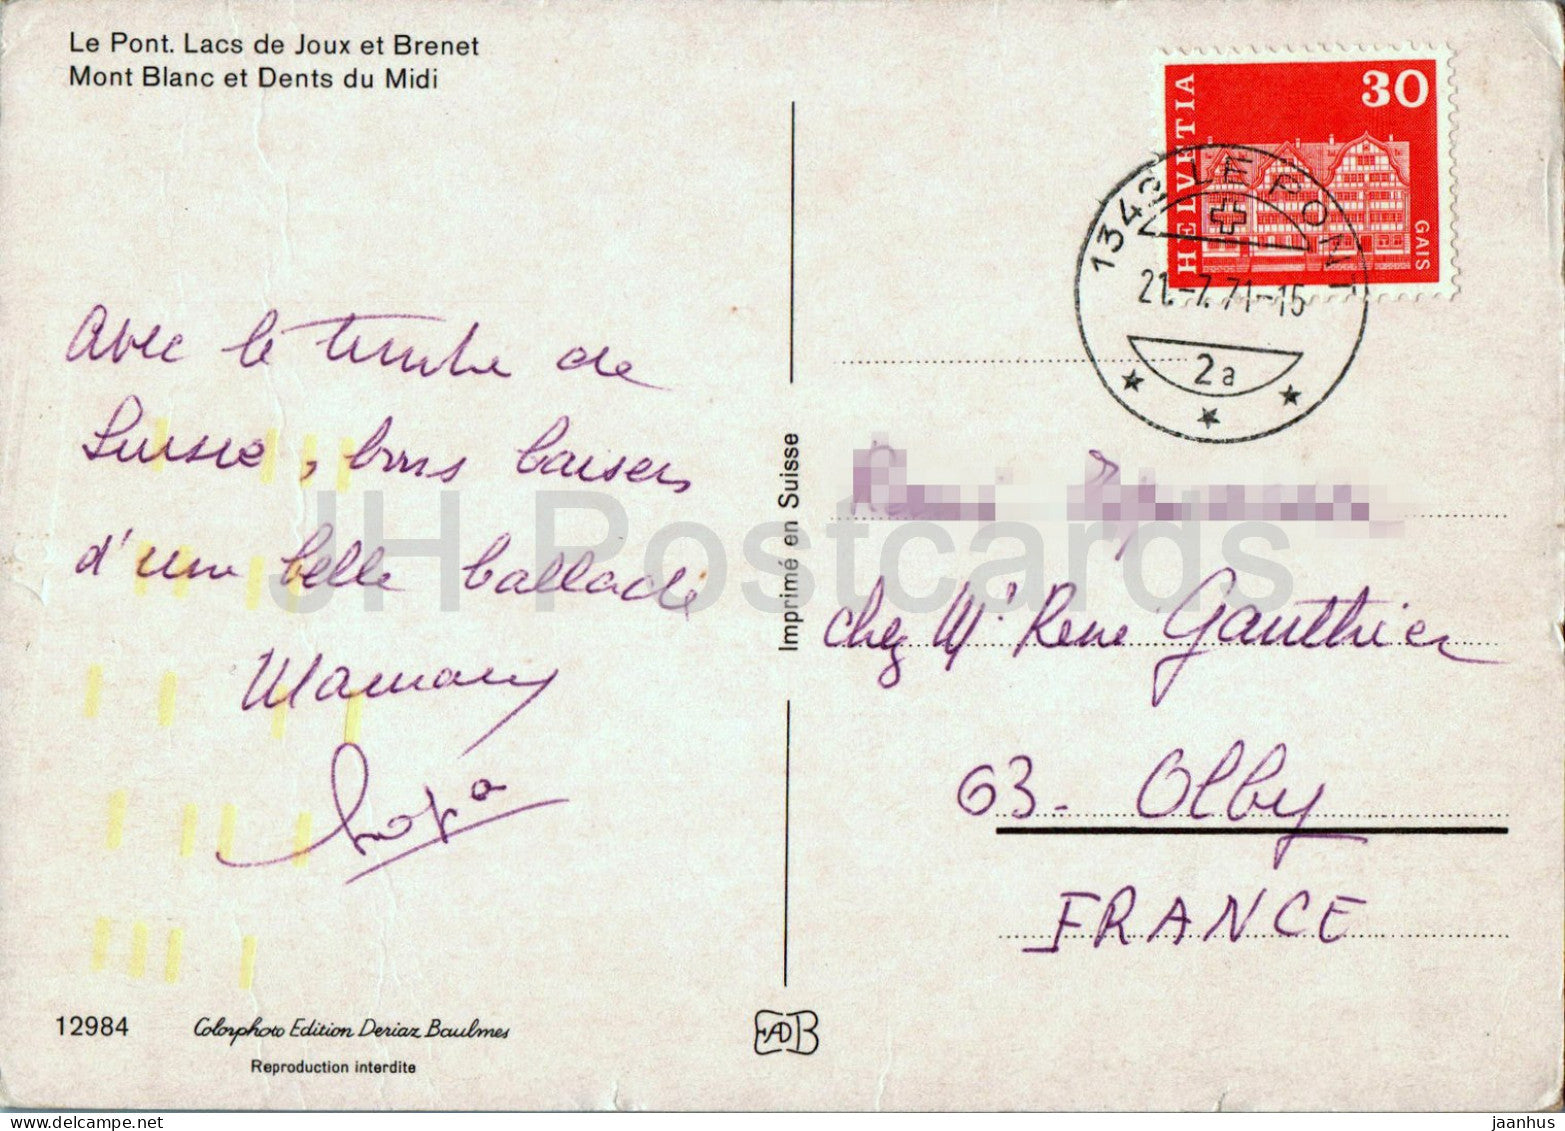 Le Pont. Lacs de Joux et Brenet
Mont Blanc et Dents du Midi
HELVETIA
30
GAIS
1342 LE PONT
21.-7.71-15
2a
Avec le timbre de
Suisse, bons baisers
d'une belle ballade
Mamany
Papa
Imprimé en Suisse
chez Mr René Gauthier
63- Olby
FRANCE
12984
Colorphoto Edition Deriaz Baulmes
Reproduction interdite
EADB
JH Postcards
jaanhus @ delcampe.net